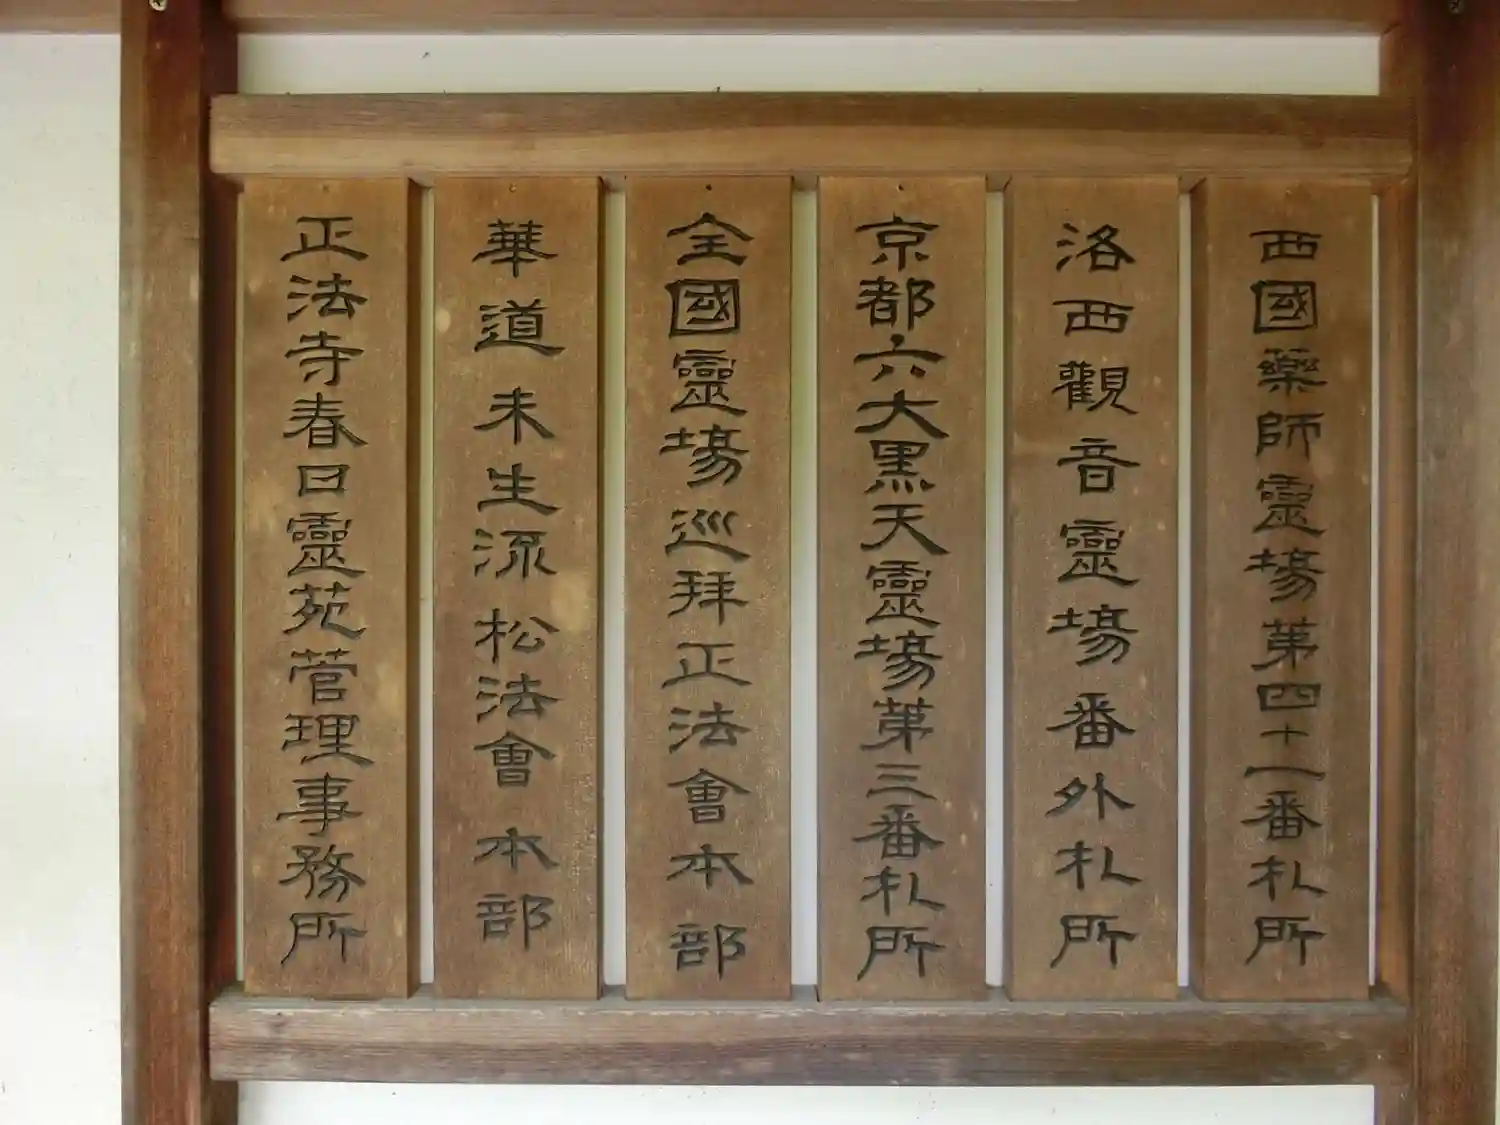 西國藥師靈場第四十一番札所
洛西觀音靈場番外札所
京都六大黒天靈場第三番札所
全國靈場巡拜正法會本部
華道未生流松法會本部
正法寺春日靈苑管理事務所